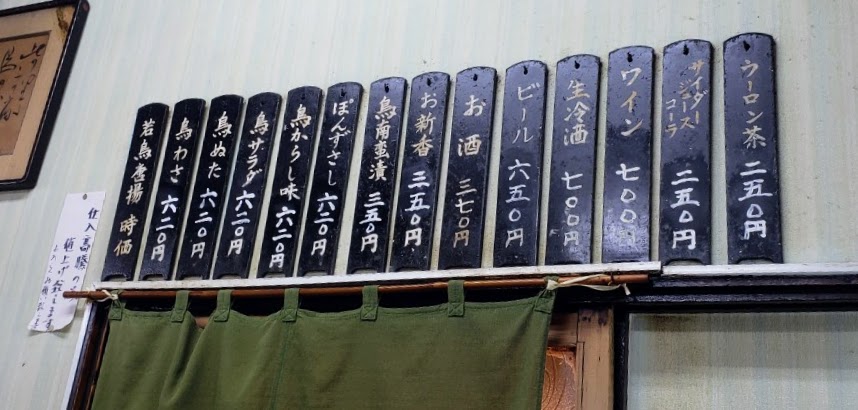 ウーロン茶 二五〇円
サイダー
ジュース
コーラ
二五〇円
ワイン 七〇〇円
生冷酒 七〇〇円
ビール 六五〇円
お酒 三七〇円
お新香 三五〇円
鳥南蛮漬 三五〇円
ぽんずさし 六二〇円
鳥からし味 六二〇円
鳥サラダ 六二〇円
鳥ぬた 六二〇円
鳥わさ 六二〇円
若鳥唐揚 時価
仕入高騰の
値上げ致します